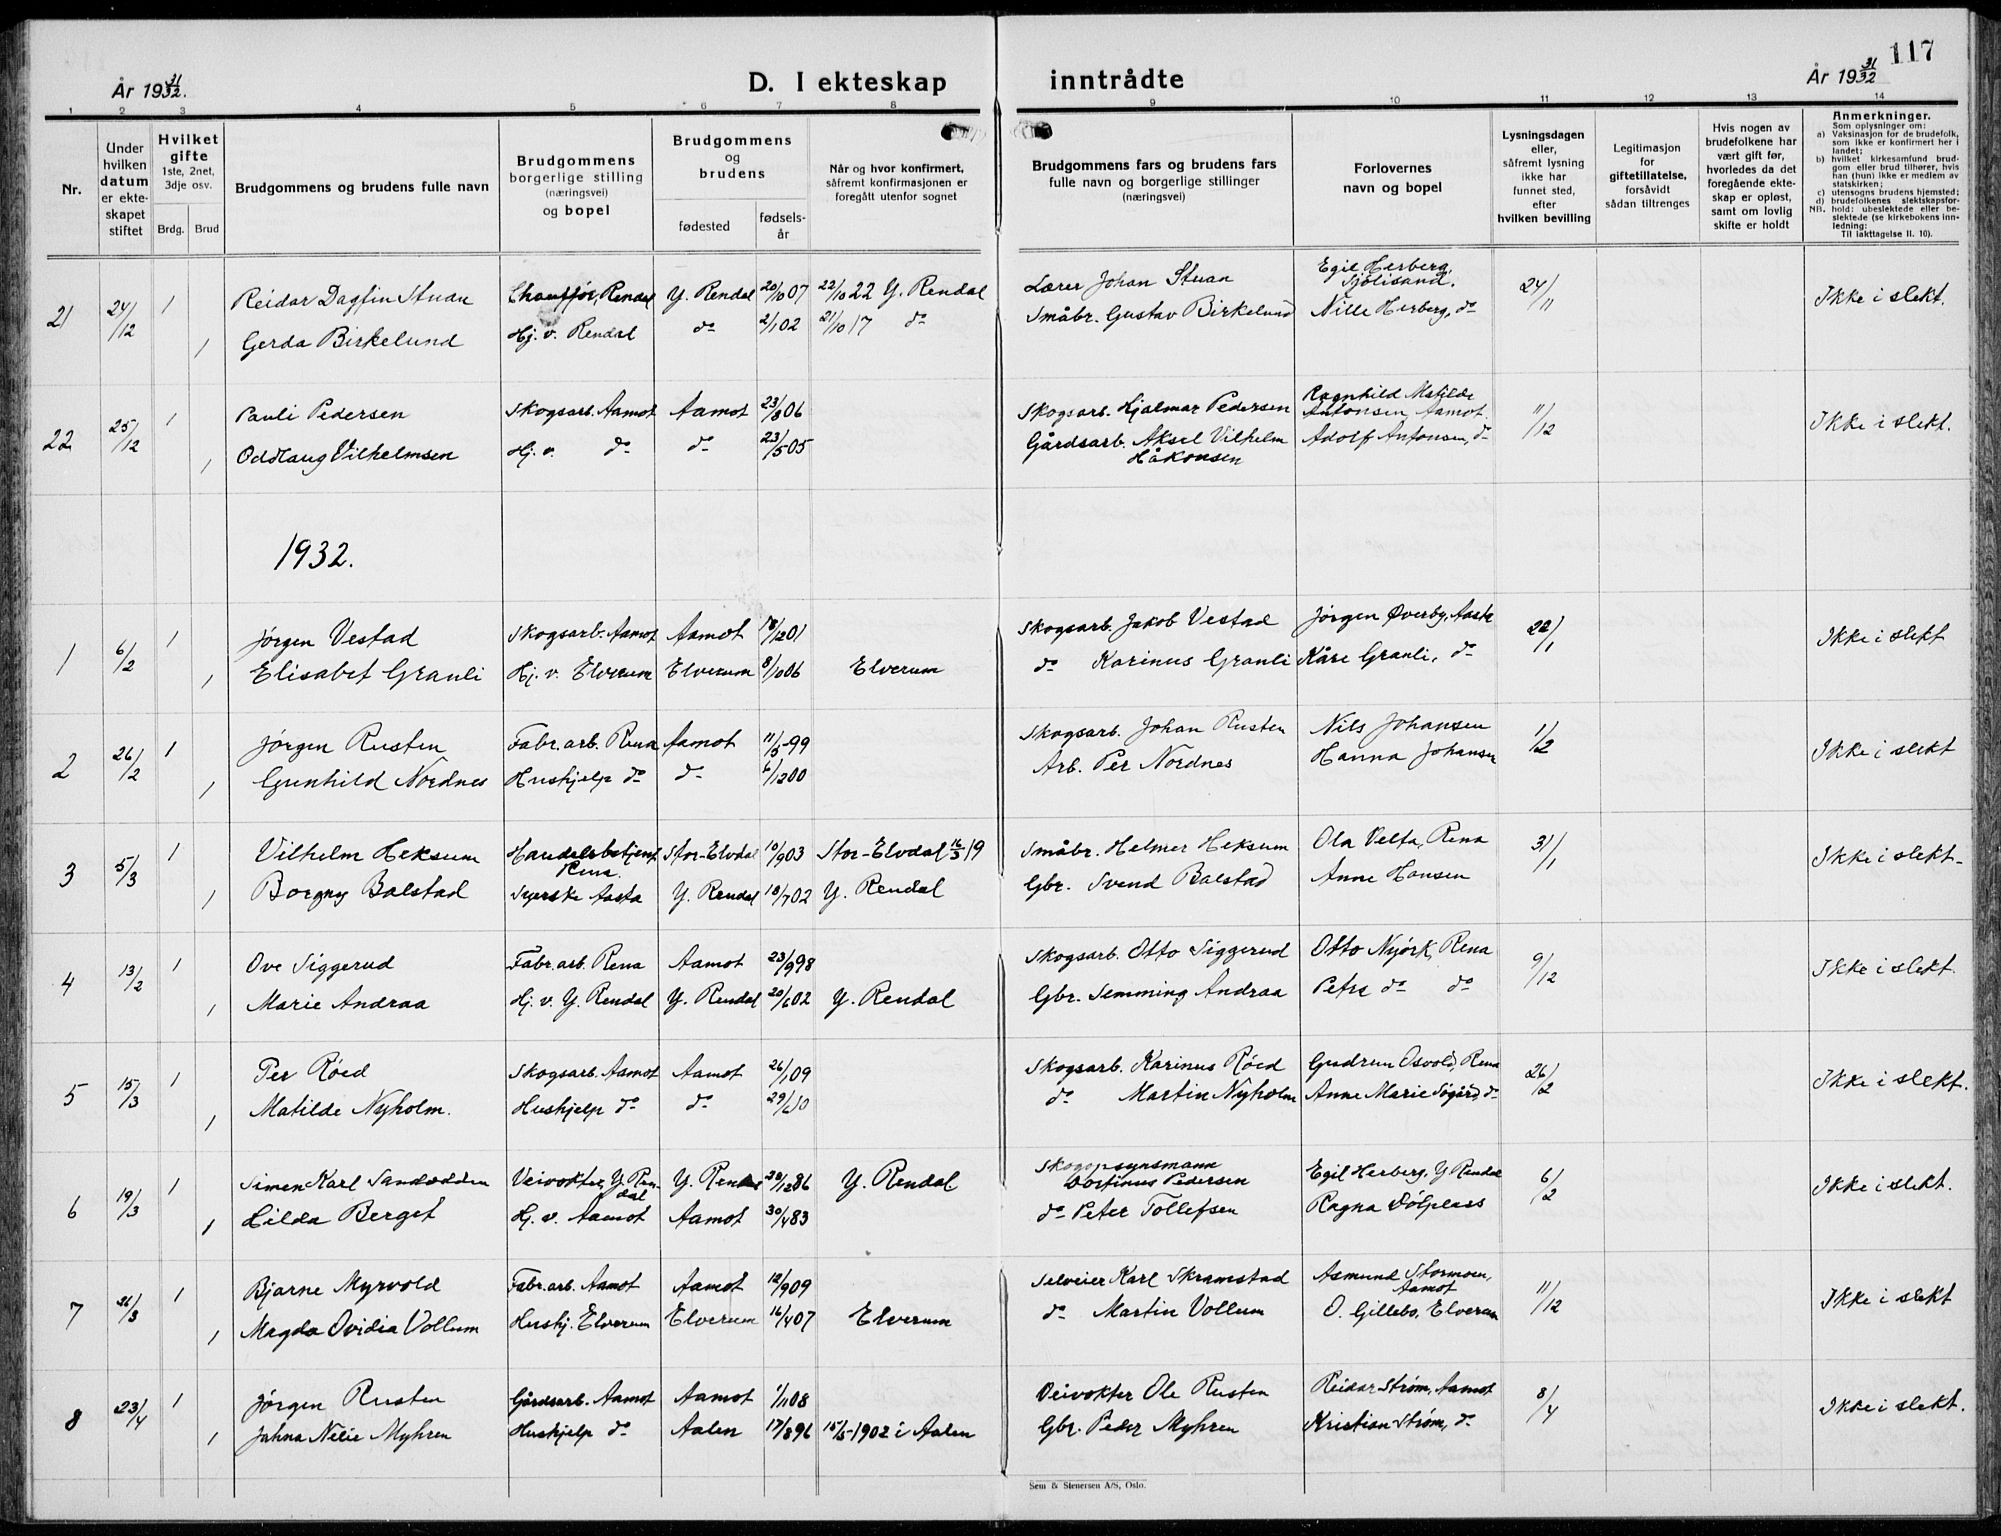 117
År 19 31/32.
D. I ekteskap inntrådte
År 19 31/32
1 2 3 4 5 6 7 8 9 10 11 12 13 14
Nr.
Under hvilken datum er ekteskapet stiftet
Hvilket gifte
1ste, 2net, 3dje osv.
Brdg. Brud
Brudgommens og brudens fulle navn
Brudgommens borgerlige stilling (næringsvei) og bopel
Brudgommens og brudens
fødested
fødselsår
Når og hvor konfirmert, såfremt konfirmasjonen er foregått utenfor sognet
Brudgommens fars og brudens fars fulle navn og borgerlige stillinger (næringsvei)
Forlovernes navn og bopel
Lysningsdagen eller, såfremt lysning ikke har funnet sted, efter hvilken bevilling
Legitimasjon for giftetillatelse, forsåvidt sådan tiltrenges
Hvis nogen av brudefolkene har vært gift før, hvorledes da det foregående ekteskap er opløst, samt om lovlig skifte er holdt
Anmerkninger.
Som oplysninger om:
a) Vaksinasjon for de brudefolk, som ikke er konfirmert her i landet;
b) hvilket kirkesamfund brudgom eller brud tilhører, hvis han (hun) ikke er medlem av statskirken;
c) utensogns brudens hjemsted;
d) brudefolkenes slektskapsforhold: ubeslektede eller beslektede (se kirkebokens innledning:
NB. Til iakttagelse II. 10).
21 24/12 1 Reidar Dagfin Stuan Chauffør, Rendal Y. Rendal 20/10 07 22/10 22 Y. Rendal Lærer Johan Stuan Egil Herberg, Sjølisand. 24/11 Ikke i slekt.
1 Gerda Birkelund Hj. v. Rendal do 2/1 02 21/10 17 do Småbr. Gustav Birkelund Nille Herberg, do
22 25/12 1 Pauli Pedersen Skogsarb. Aamot Aamot 23/8 06 Skogsarb. Hjalmar Pedersen Ragnhild Matilde Antonsen, Aamot. 11/12 Ikke i slekt.
1 Oddlaug Vilhelmsen Hj. v. do do 23/5 05 Gårdsarb. Aksel Vilhelm Håkonsen Adolf Antonsen, do
1932.
1 6/2 1 Jørgen Vestad Skogsarb. Aamot Aamot 18/12 01 Skogsarb. Jakob Vestad Jørgen Øverby, Aasta 22/1 Ikke i slekt
1 Elisabet Granli Hj. v. Elverum Elverum 8/10 06 Elverum do Karinus Granli Kåre Granli, do
2 26/2 1 Jørgen Rusten Fabr.arb. Rena Aamot 11/5 99 Skogsarb. Johan Rusten Nils Johansen 1/2 Ikke i slekt
1 Gunhild Nordnes Hushjelp do do 6/12 00 Arb. Per Nordnes Hanna Johansen
3 5/3 1 Vilhelm Heksum Handelsbetjent Rena. Stor-Elvdal 10/9 03 Stor-Elvdal 16/3 19 Småbr. Helmer Heksum Ola Velta, Rena 31/1 Ikke i slekt-
1 Borgny Balstad Syerske Aasta Y. Rendal 18/7 02 Y. Rendal Gbr. Svend Balstad Anne Hansen
4 13/2 1 Ove Siggerud Fabr.arb. Rena Aamot 23/9 98 Skogsarb. Otto Siggerud Otto Nyjörk, Rena 9/12 Ikke i slekt.
1 Marie Andraa Hj. v. Y. Rendal Y. Rendal 20/6 02 Y. Rendal Gbr. Semming Andraa Petra do do
5 15/3 1 Per Røed Skogsarb. Aamot Aamot 26/1 09 Skogsarb. Karinus Røed Gudrun Osvold, Rena 26/2 Ikke i slekt.
1 Matilde Nyholm. Hushjelp do do 29/6 10 do Martin Nyholm Anne Marie Søgård, do
6 19/3 1 Simen Karl Sandodden Veivokter, Y. Rendal Y. Rendal 28/12 86 Y. Rendal Skogopsynsmann Dortinus Pedersen Egil Herberg, Y Rendal 6/2 Ikke i slekt.
1 Hilda Berget Hj. v. Aamot Aamot 30/4 83 do Peter Tollefsen Ragna Dølplass
7 26/3 1 Bjarne Myrvold Fabr.arb. Aamot Aamot 12/9 09 Selveier Karl Skramstad Asmund Stormoen, Aamot 11/12 Ikke i slekt
1 Magda Ovidia Vollum Hushj. Elverum Elverum 16/4 07 Elverum do Martin Vollum O. Gillebo, Elverum
8 23/4 1 Jørgen Rusten Gårdsarb. Aamot Aamot 1/1 08 Veivokter Ole Rusten Reidar Strøm, Aamot 8/4 Ikke i slekt.
1 Jahna Nelie Myhren Hushjelp do Aalen 17/8 96 15/5-1902 i Aalen Gbr. Peder Myhren Kristian Strøm, do
Sem & Stenersen A/S, Oslo.